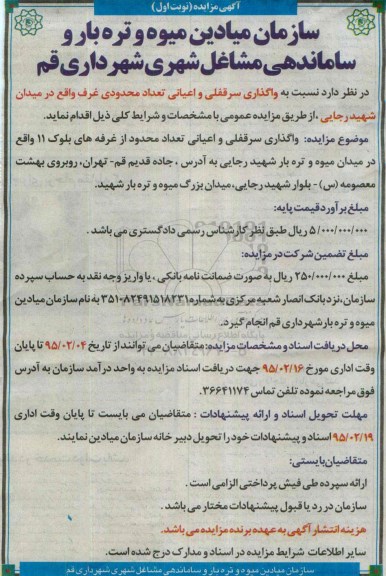 آگهی مزایده (نوبت اول)
سازمان میادین میوه و تره بار و
ساماندهی مشاغل شهری شهرداری قم
در نظر دارد نسبت به واگذاری سرقفلی و اعیانی تعداد محدودی غرف واقع در میدان
شهید رجایی ، از طریق مزایده عمومی با مشخصات و شرایط کلی ذیل اقدام نماید.
موضوع مزایده: واگذاری سرقفلی و اعیانی تعداد محدود از غرفه های بلوک ۱۱ واقع
در میدان میوه و تره بار شهید رجایی به آدرس ، جاده قدیم قم- تهران، روبروی بهشت
معصومه (س) - بلوار شهید رجایی، میدان بزرگ میوه و تره بار شهید.
مبلغ برآورد قیمت پایه:
۵/۰۰۰/۰۰۰/۰۰۰ ریال طبق نظر کارشناس رسمی دادگستری می باشد .
مبلغ تضمین شرکت در مزایده:
مبلغ ۲۵۰/۰۰۰/۰۰۰ ریال به صورت ضمانت نامه بانکی ، یا واریز وجه نقد به حساب سپرده
سازمان، نزد بانک انصار شعبه مرکزی به شماره ۱-۸۲۴۹۱۵۱۸۲۳-۳۵۱ به نام سازمان میادین
میوه و تره بار شهرداری قم انجام گیرد.
محل دریافت اسناد و مشخصات مزایده: متقاضیان می توانند از تاریخ ۹۵/۰۲/۰۴ تا پایان
وقت اداری مورخ ۹۵/۰۲/۱۶ جهت دریافت اسناد مزایده به واحد درآمد سازمان به آدرس
فوق مراجعه نموده تلفن تماس ۳۶۶۴۱۱۷۴.
مهلت تحویل اسناد و ارائه پیشنهادات : متقاضیان می بایست تا پایان وقت اداری
۹۵/۰۲/۱۹ اسناد و پیشنهادات خود را تحویل دبیر خانه سازمان میادین نمایند.
متقاضیان بایستی:
ارائه سپرده طی فیش پرداختی الزامی است .
سازمان در رد یا قبول پیشنهادات مختار می باشد .
هزینه انتشار آگهی به عهده برنده مزایده می باشد.
سایر اطلاعات شرایط مزایده در اسناد و مدارک درج شده است.
سازمان میادین میوه و تره بار و ساماندهی مشاغل شهری شهرداری قم